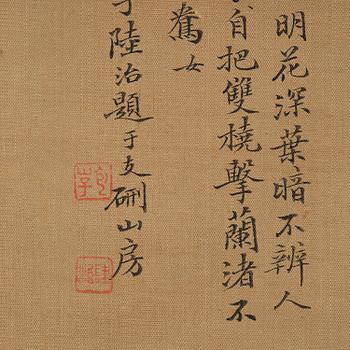 明花深葉暗不辨人
自把雙橈擊蘭渚不
驚女
陸治題于支硎山房
包山